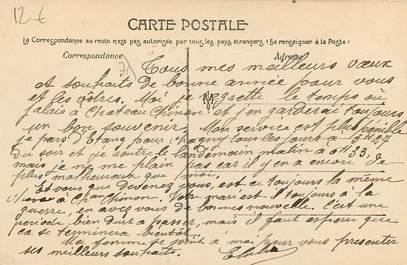 12 €
CARTE POSTALE
La Correspondance au recto n'est pas autorisée par tous les pays étrangers (Se renseigner à la Poste)
Correspondance
Adresse
Tous mes meilleurs vœux
et souhaits de bonne année pour vous
et les vôtres. Moi je regrette le temps où
j'alais à Chateau Chinon et j'en garderai toujours
un bon souvenir. Mon service est plus pénible
je pars d'Etang pour tous les jours à 27
du soir et je rentre le lendemain matin à 4 H 33,
mais je ne me plains pas car il y en a encore de
plus malheureux que moi.
Et vous que devenez vous, est ce toujours la même
à Chau Chinon. Votre mari est il toujours à la
guerre, en avez vous de bonnes nouvelles. C'est une
période bien dur à passer, mais il faut espérer que
ça se terminera bientôt.
Ma femme se joint à moi pour vous présenter
ses meilleurs souhaits.